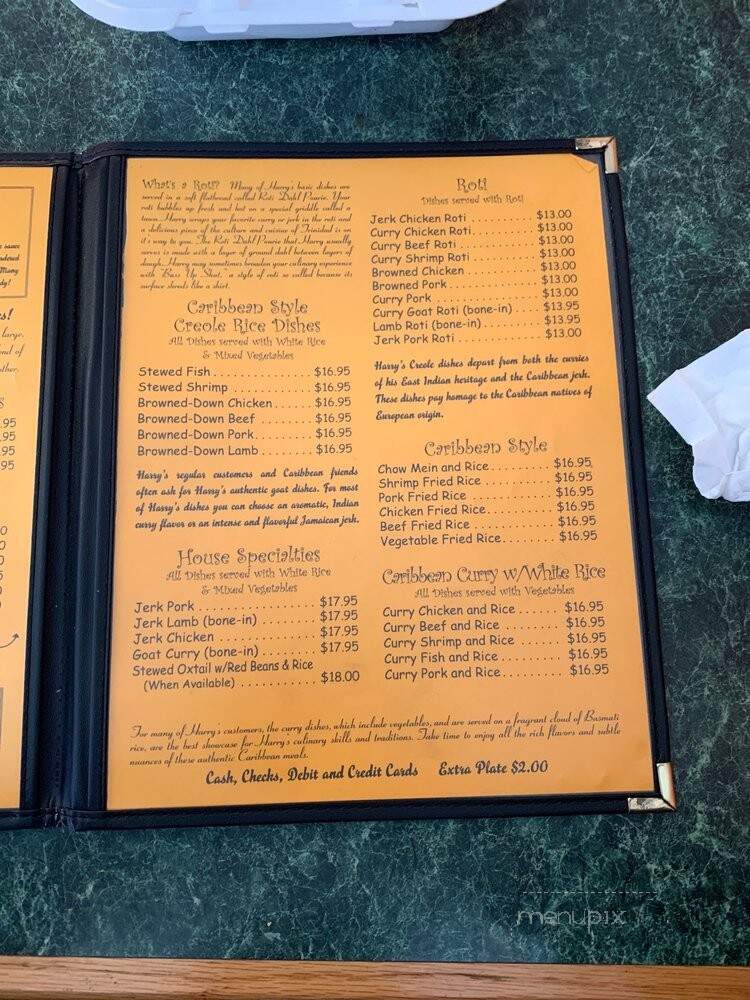 sauce
ndered
Many
dy!
s!
large,
nd of
ther,
s
.95
.95
.95
95
0
0
0
5
0
What's a Roti? Many of Harry's basic dishes are
served in a soft flatbread called Roti Dahl Pourie. Your
roti bubbles up fresh and hot on a special griddle called a
tawa. Harry wraps your favorite curry or jerk in the roti and
a delicious piece of the culture and cuisine of Trinidad is on
it's way to you. The Roti Dahl Pourie that Harry usually
serves is made with a layer of ground dahl between layers of
dough. Harry may sometimes broaden your culinary experience
with "Buss Up Shut," a style of roti so called because its
surface shreds like a shirt.
Caribbean Style
Creole Rice Dishes
All Dishes served with White Rice
& Mixed Vegetables
Stewed Fish . . . . . . . . . . . $16.95
Stewed Shrimp . . . . . . . . . $16.95
Browned-Down Chicken . . . . . $16.95
Browned-Down Beef . . . . . . . $16.95
Browned-Down Pork . . . . . . . $16.95
Browned-Down Lamb . . . . . . . $16.95
Harry's regular customers and Caribbean friends
often ask for Harry's authentic goat dishes. For most
of Harry's dishes you can choose an aromatic, Indian
curry flavor or an intense and flavorful Jamaican jerk.
House Specialties
All Dishes served with White Rice
& Mixed Vegetables
Jerk Pork . . . . . . . . . . . . $17.95
Jerk Lamb (bone-in) . . . . . . $17.95
Jerk Chicken . . . . . . . . . . $17.95
Goat Curry (bone-in) . . . . . . $17.95
Stewed Oxtail w/Red Beans & Rice
(When Available) . . . . . . . . $18.00
Roti
Dishes served with Roti
Jerk Chicken Roti . . . . . . . . $13.00
Curry Chicken Roti. . . . . . . . $13.00
Curry Beef Roti . . . . . . . . . $13.00
Curry Shrimp Roti . . . . . . . . $13.00
Browned Chicken . . . . . . . . . $13.00
Browned Pork . . . . . . . . . . $13.00
Curry Pork . . . . . . . . . . . $13.00
Curry Goat Roti (bone-in) . . . . $13.95
Lamb Roti (bone-in) . . . . . . . $13.95
Jerk Pork Roti . . . . . . . . . $13.00
Harry's Creole dishes depart from both the curries
of his East Indian heritage and the Caribbean jerk.
These dishes pay homage to the Caribbean natives of
European origin.
Caribbean Style
Chow Mein and Rice . . . . . . . $16.95
Shrimp Fried Rice . . . . . . . . $16.95
Pork Fried Rice . . . . . . . . . $16.95
Chicken Fried Rice . . . . . . . $16.95
Beef Fried Rice . . . . . . . . . $16.95
Vegetable Fried Rice . . . . . . $16.95
Caribbean Curry w/White Rice
All Dishes served with Vegetables
Curry Chicken and Rice . . . . . $16.95
Curry Beef and Rice . . . . . . . $16.95
Curry Shrimp and Rice . . . . . . $16.95
Curry Fish and Rice . . . . . . . $16.95
Curry Pork and Rice . . . . . . . $16.95
For many of Harry's customers, the curry dishes, which include vegetables, and are served on a fragrant cloud of Basmati
rice, are the best showcase for Harry's culinary skills and traditions. Take time to enjoy all the rich flavors and subtle
nuances of these authentic Caribbean meals.
Cash, Checks, Debit and Credit Cards Extra Plate $2.00
menupix